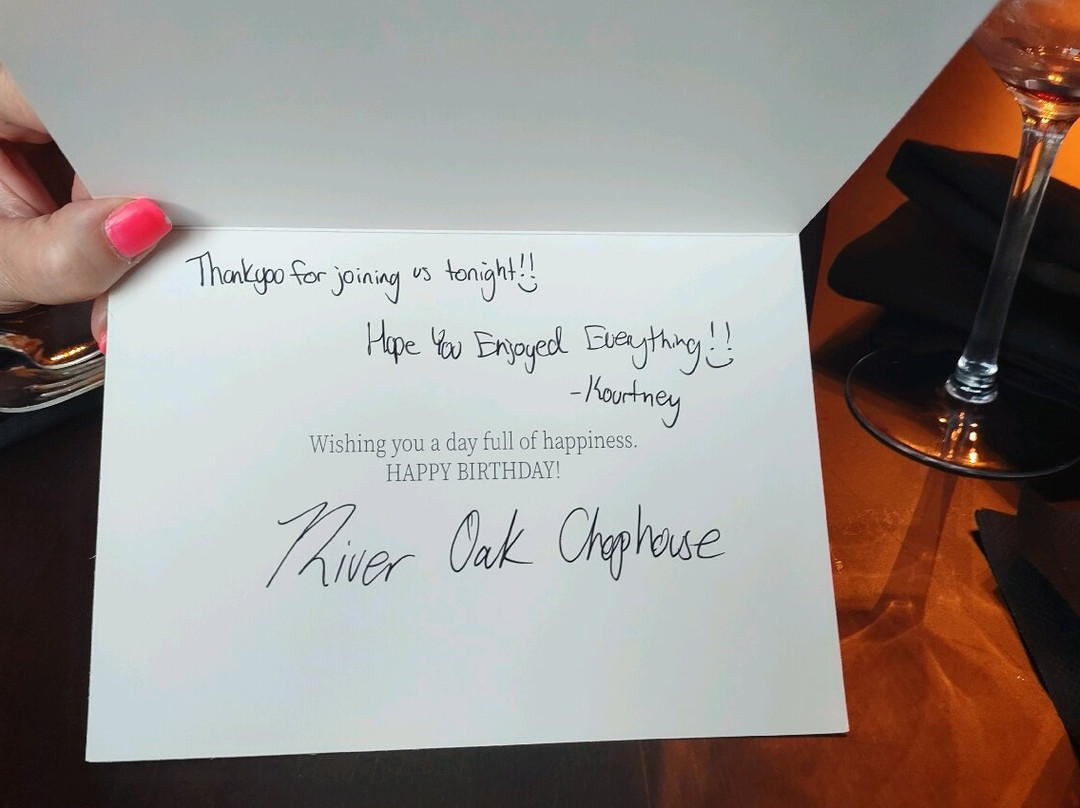 Thankyoo for joining us tonight!!
Hope You Enjoyed Everything!!
-Kourtney
Wishing you a day full of happiness.
HAPPY BIRTHDAY!
River Oak Chophouse